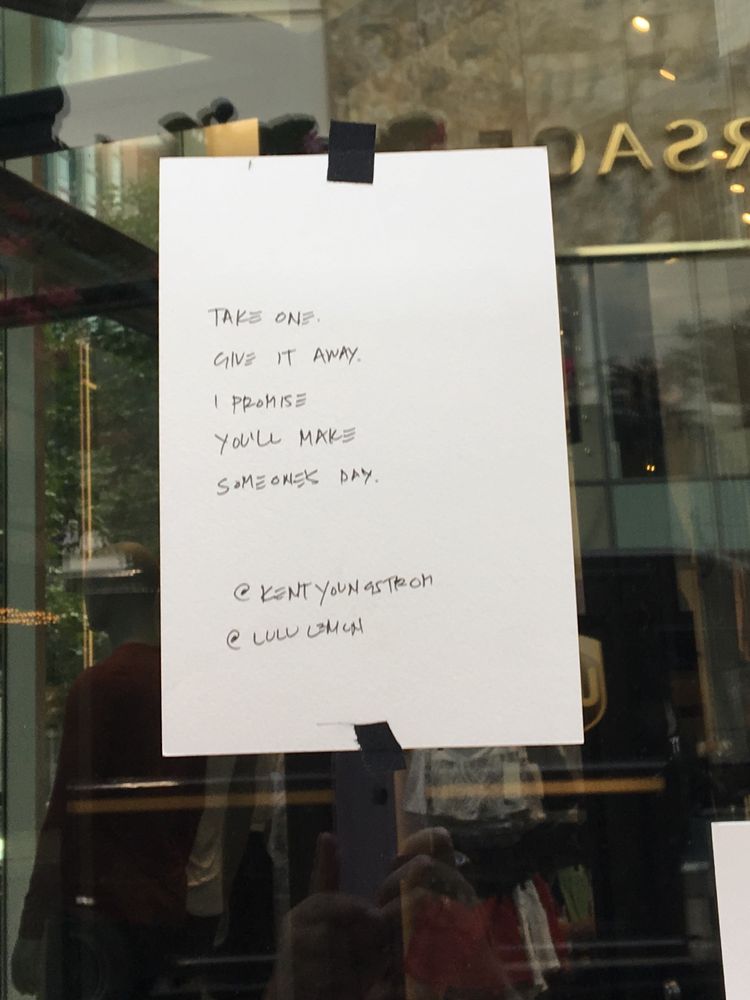 RSAC
TAKE ONE.
GIVE IT AWAY.
I PROMISE
YOU'LL MAKE
SOMEONE'S DAY.
@KENTYOUNGSTROM
@LULULEMON